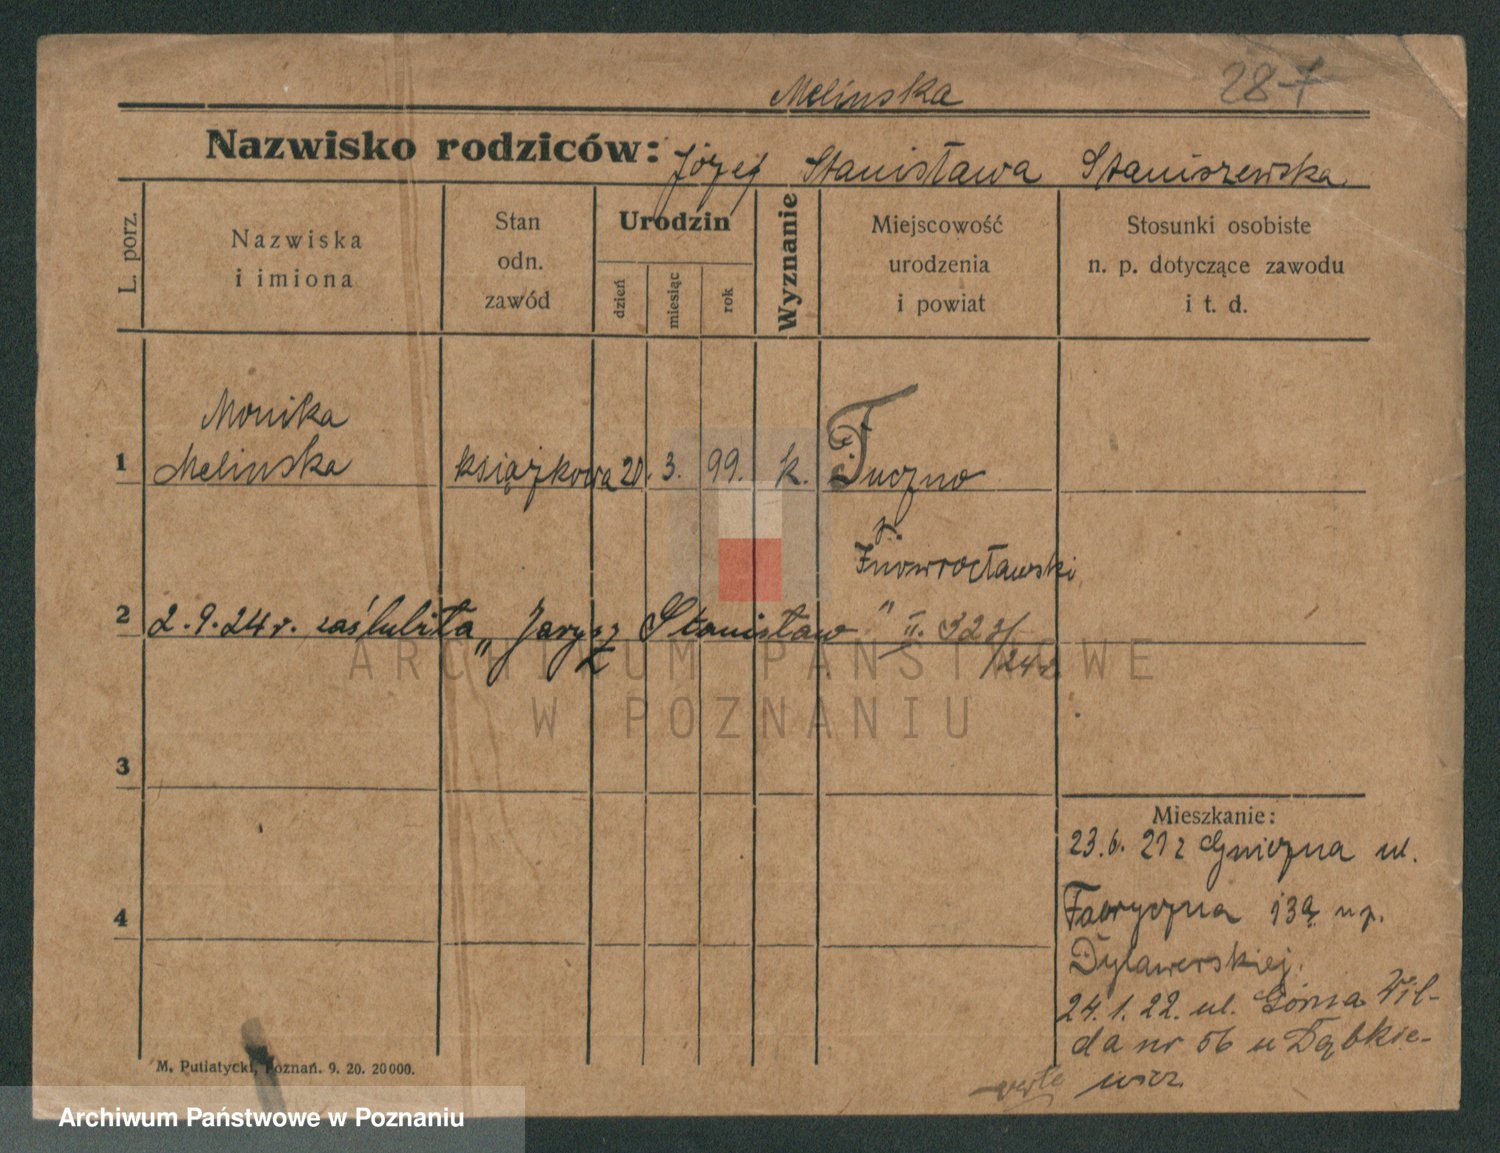 287
Melinska
Nazwisko rodziców: Józef Stanisława Staniszewska
L. porz.
Nazwiska
i imiona
Stan
odn.
zawód
Urodzin
dzień
miesiąc
rok
Wyznanie
Miejscowość
urodzenia
i powiat
Stosunki osobiste
n. p. dotyczące zawodu
i t. d.
Monika
1 Melinska książkowa 20. 3. 99. k. Tuczno
p.
Inowrocławski
2 2.9.24 r. zaślubiła „Jarysz Stanisław" II. 323/
/24r
ARCHIWUM PAŃSTWOWE
W POZNANIU
3
4
Mieszkanie:
23.6.21 z Gniezna ul.
Fabryczna 13a u p.
24.1.22. ul. Górna Wil-
da nr 56 u Dąbkie-
wicz
verte
M. Putiatycki, Poznań. 9. 20. 20000.
Archiwum Państwowe w Poznaniu